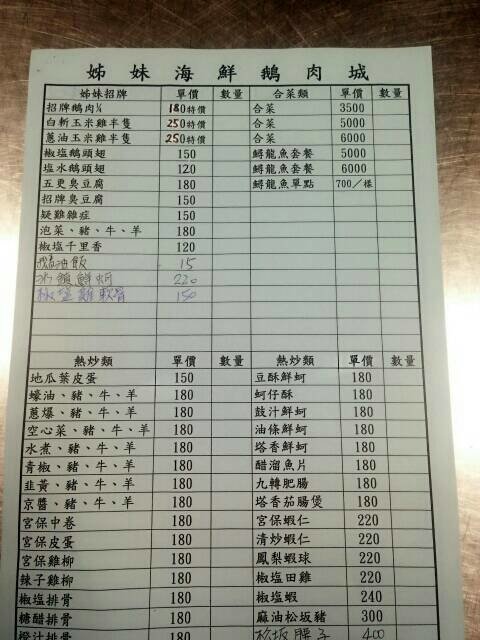 姊妹海鮮鵝肉城
姊妹招牌 單價 數量 合菜類 單價 數量
招牌鵝肉¼ 180特價 合菜 3500
白斬玉米雞半隻 250特價 合菜 5000
蔥油玉米雞半隻 250特價 合菜 6000
椒塩鵝頭翅 150 鱘龍魚套餐 5000
塩水鵝頭翅 120 鱘龍魚套餐 6000
五更臭豆腐 180 鱘龍魚單點 700/樣
招牌臭豆腐 150
疑難雜症 150
泡菜、豬、牛、羊 180
椒塩千里香 120
鵝油飯 15
冰鎮鮮蚵 220
椒塩雞軟骨 150
熱炒類 單價 數量 熱炒類 單價 數量
地瓜葉皮蛋 150 豆酥鮮蚵 180
蠔油、豬、牛、羊 180 蚵仔酥 180
蔥爆、豬、牛、羊 180 鼓汁鮮蚵 180
空心菜、豬、牛、羊 180 油條鮮蚵 180
水煮、豬、牛、羊 180 塔香鮮蚵 180
青椒、豬、牛、羊 180 醋溜魚片 180
韭黃、豬、牛、羊 180 九轉肥腸 180
京醬、豬、牛、羊 180 塔香茄腸煲 180
宮保中卷 180 宮保蝦仁 220
宮保皮蛋 180 清炒蝦仁 220
宮保雞柳 180 鳳梨蝦球 220
辣子雞柳 180 椒塩田雞 220
椒塩排骨 180 椒塩蝦 240
糖醋排骨 180 麻油松坂豬 300
橙汁排骨 180 松坂 400